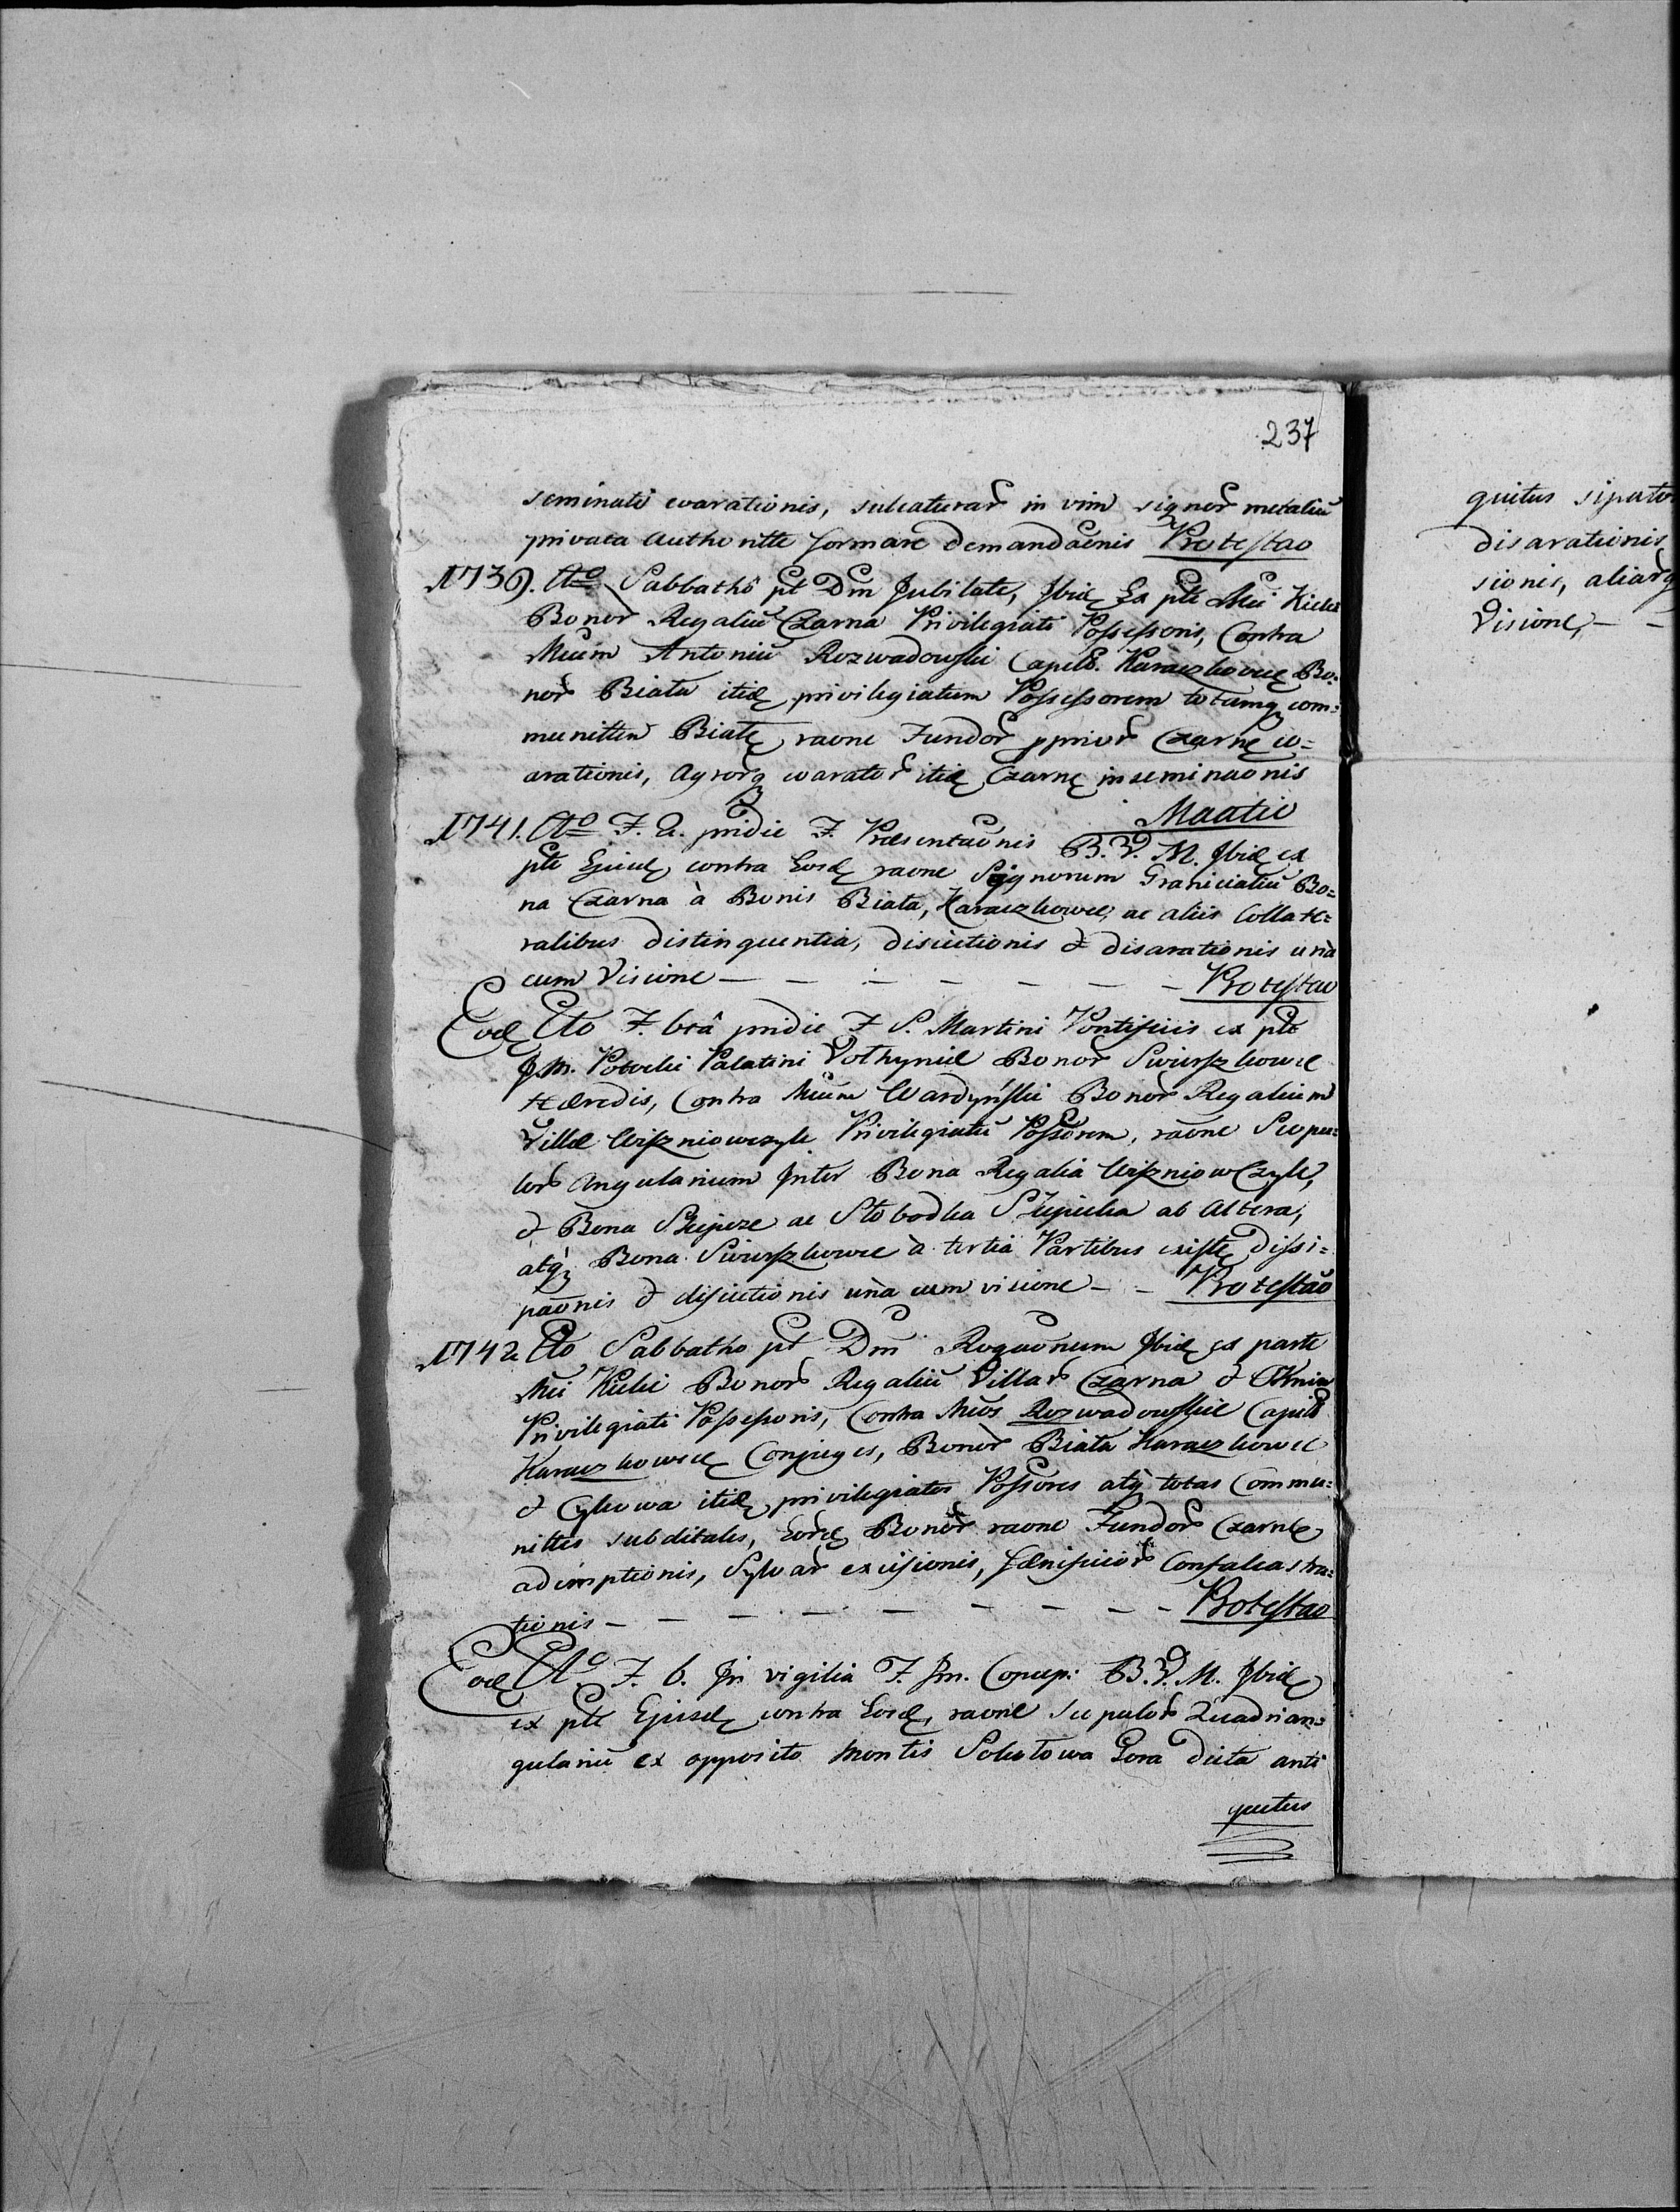 237
seminati evarationis, sulcaturar in vim signor metaliū
privata Authoritte formare demandaēnis Protestao
1739. Ao Sabbathô pt Dm Jubilate, Ibid Ex pte Mci Kicki
Bonor Regaliū Czarna Privilegiati Possessoris, Contra
Mcum Antoniū Rozwadowski Capit. Karaczkowce Bo=
nor Biała itid privilegiatum Possessorem totamq com=
munitten Białę raone Fundor pprior Czarnę ev=
arationis, Agrorq evarator itid Czarnę inseminaonis
Maatio
1741. Ao F. 2. pridie F. Praesentaōnis B.V.M. Ibid ex
pte Ejusd contra Eosd raone Signorum Graniciatiū Bo=
na Czarna à Bonis Biała, Karaczkowce, ac aliis Collate=
ralibus distinguentia, disiectionis & disarationis unà
cum Visione - - - - - - - Protestao
Eod Ao F. 6tâ pridie F S. Martini Pontificis ex pte
J.M. Potocki Palatini Wolhyniæ Bonor Swierszkowce
Hæredis, Contra Mcum Wardyński Bonor Regalium
Villæ Wiszniowczyk Privilegiatū Possorem, raone Scopu=
lor Angularium Inter Bona Regalia Wiszniowczyk,
& Bona Słobodka ab Altera,
atq Bona Swierszkowce à tertia Partibus existę dissi=
paōnis & disiectionis unà cum visione - - Protestāo
1742 Ao Sabbatho pt Dm Rogaōnum Ibid ex parte
Mci Kicki Bonor Regaliū Villar Czarna & Oknin
Privilegiati Possessoris, Contra Mcos Rozwadowskie Capit
Karaczkowce Conjuges, Bonor Biała Karaczkowce
& Cykowa itid privilegiatos Possores atq totas Commu=
nittes subditales, Eord Bonor raone Fundor Czarnę
ademptionis, Sylvar excisionis, fænisicior Confalcastra=
tionis - - - - - - - - Protestao
Eod Ao F. 6. In vigilia F. Im. Concep: B.V.M. Ibid
ex pte Ejusd contra Eosd, raone Scopulor Quadrian=
gulariū ex opposito Montis Gora dicta anti
quitus
quitus
disarationis
sionis,
Visione, - -